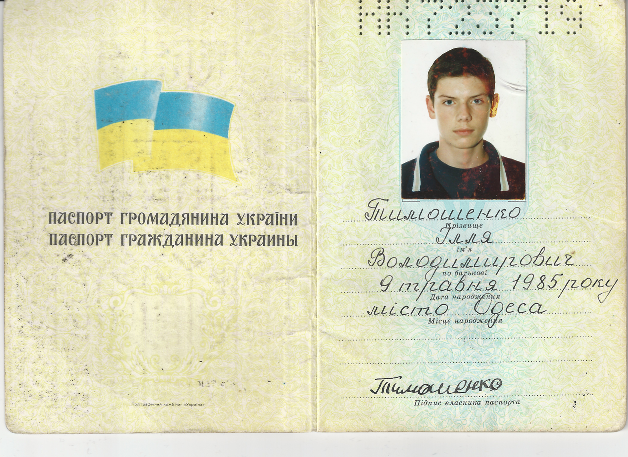 ПАСПОРТ ГРОМАДЯНИНА УКРАЇНИ
ПАСПОРТ ГРАЖДАНИНА УКРАИНЫ
Тимошенко
Прізвище
Ілля
Ім'я
Володимирович
по батькові
9 травня 1985 року
Дата народження
місто Одеса
Місце народження
Тимошенко
Підпис власника паспорта